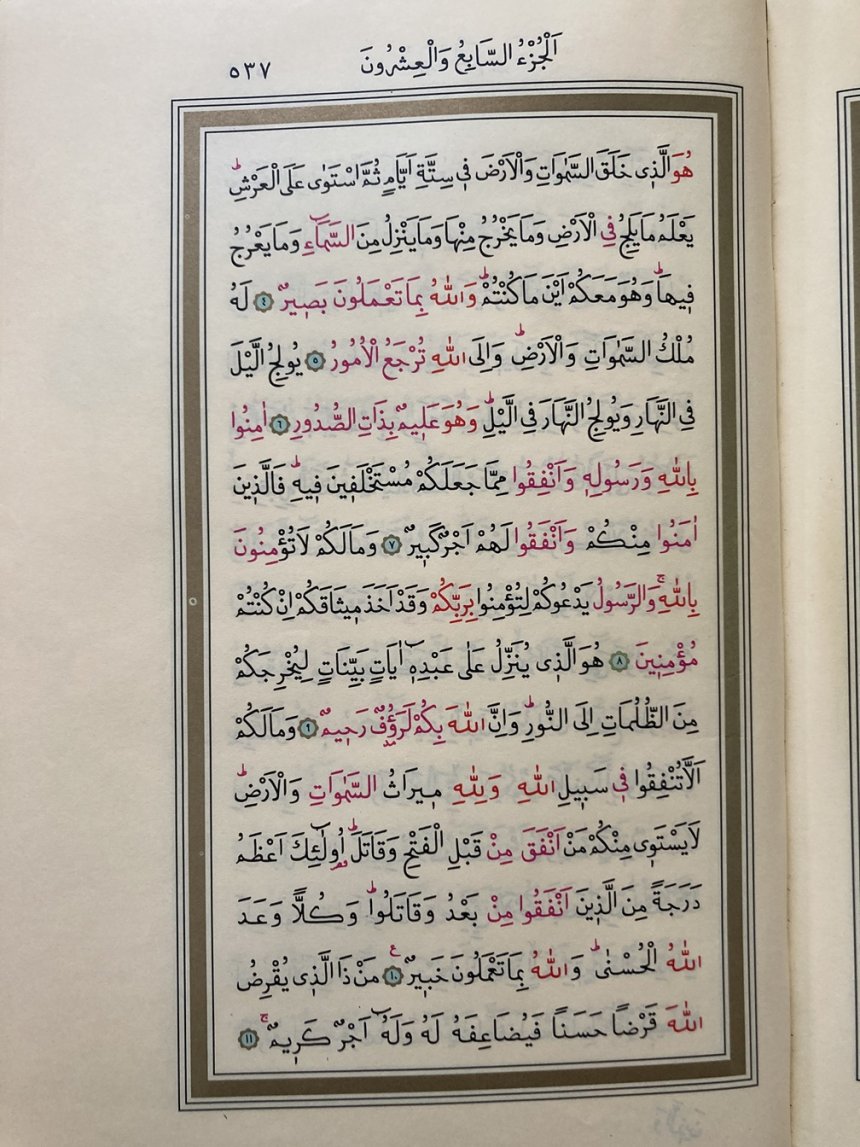 اَلْجُزْءُ السَّابِعُ وَالْعِشْرُونَ
٥٣٧
هُوَ الَّذ۪ى خَلَقَ السَّمٰوَاتِ وَالْاَرْضَ ف۪ى سِتَّةِ اَيَّامٍ ثُمَّ اسْتَوٰى عَلَى الْعَرْشِۜ
يَعْلَمُ مَا يَلِجُ فِى الْاَرْضِ وَمَا يَخْرُجُ مِنْهَا وَمَا يَنْزِلُ مِنَ السَّمَٓاءِ وَمَا يَعْرُجُ
ف۪يهَاۜ وَهُوَ مَعَكُمْ اَيْنَ مَا كُنْتُمْۜ وَاللّٰهُ بِمَا تَعْمَلُونَ بَص۪يرٌ ﴿٤﴾ لَهُ
مُلْكُ السَّمٰوَاتِ وَالْاَرْضِۜ وَاِلَى اللّٰهِ تُرْجَعُ الْاُمُورُ ﴿٥﴾ يُولِجُ الَّيْلَ
فِى النَّهَارِ وَيُولِجُ النَّهَارَ فِى الَّيْلِۜ وَهُوَ عَل۪يمٌ بِذَاتِ الصُّدُورِ ﴿٦﴾ اٰمِنُوا
بِاللّٰهِ وَرَسُولِه۪ وَاَنْفِقُوا مِمَّا جَعَلَكُمْ مُسْتَخْلَف۪ينَ ف۪يهِۜ فَالَّذ۪ينَ
اٰمَنُوا مِنْكُمْ وَاَنْفَقُوا لَهُمْ اَجْرٌ كَب۪يرٌ ﴿٧﴾ وَمَا لَكُمْ لَا تُؤْمِنُونَ
بِاللّٰهِۚ وَالرَّسُولُ يَدْعُوكُمْ لِتُؤْمِنُوا بِرَبِّكُمْ وَقَدْ اَخَذَ م۪يثَاقَكُمْ اِنْ كُنْتُمْ
مُؤْمِن۪ينَ ﴿٨﴾ هُوَ الَّذ۪ى يُنَزِّلُ عَلٰى عَبْدِه۪ٓ اٰيَاتٍ بَيِّنَاتٍ لِيُخْرِجَكُمْ
مِنَ الظُّلُمَاتِ اِلَى النُّورِۜ وَاِنَّ اللّٰهَ بِكُمْ لَرَؤُ۫فٌ رَح۪يمٌ ﴿٩﴾ وَمَا لَكُمْ
اَلَّا تُنْفِقُوا ف۪ى سَب۪يلِ اللّٰهِ وَلِلّٰهِ م۪يرَاثُ السَّمٰوَاتِ وَالْاَرْضِۜ
لَا يَسْتَو۪ى مِنْكُمْ مَنْ اَنْفَقَ مِنْ قَبْلِ الْفَتْحِ وَقَاتَلَۜ اُو۬لٰٓئِكَ اَعْظَمُ
دَرَجَةً مِنَ الَّذ۪ينَ اَنْفَقُوا مِنْ بَعْدُ وَقَاتَلُواۜ وَكُلًّا وَعَدَ
اللّٰهُ الْحُسْنٰىۜ وَاللّٰهُ بِمَا تَعْمَلُونَ خَب۪يرٌ۟ ﴿١٠﴾ مَنْ ذَا الَّذ۪ى يُقْرِضُ
اللّٰهَ قَرْضًا حَسَنًا فَيُضَاعِفَهُ لَهُ وَلَهُٓ اَجْرٌ كَر۪يمٌۚ ﴿١١﴾